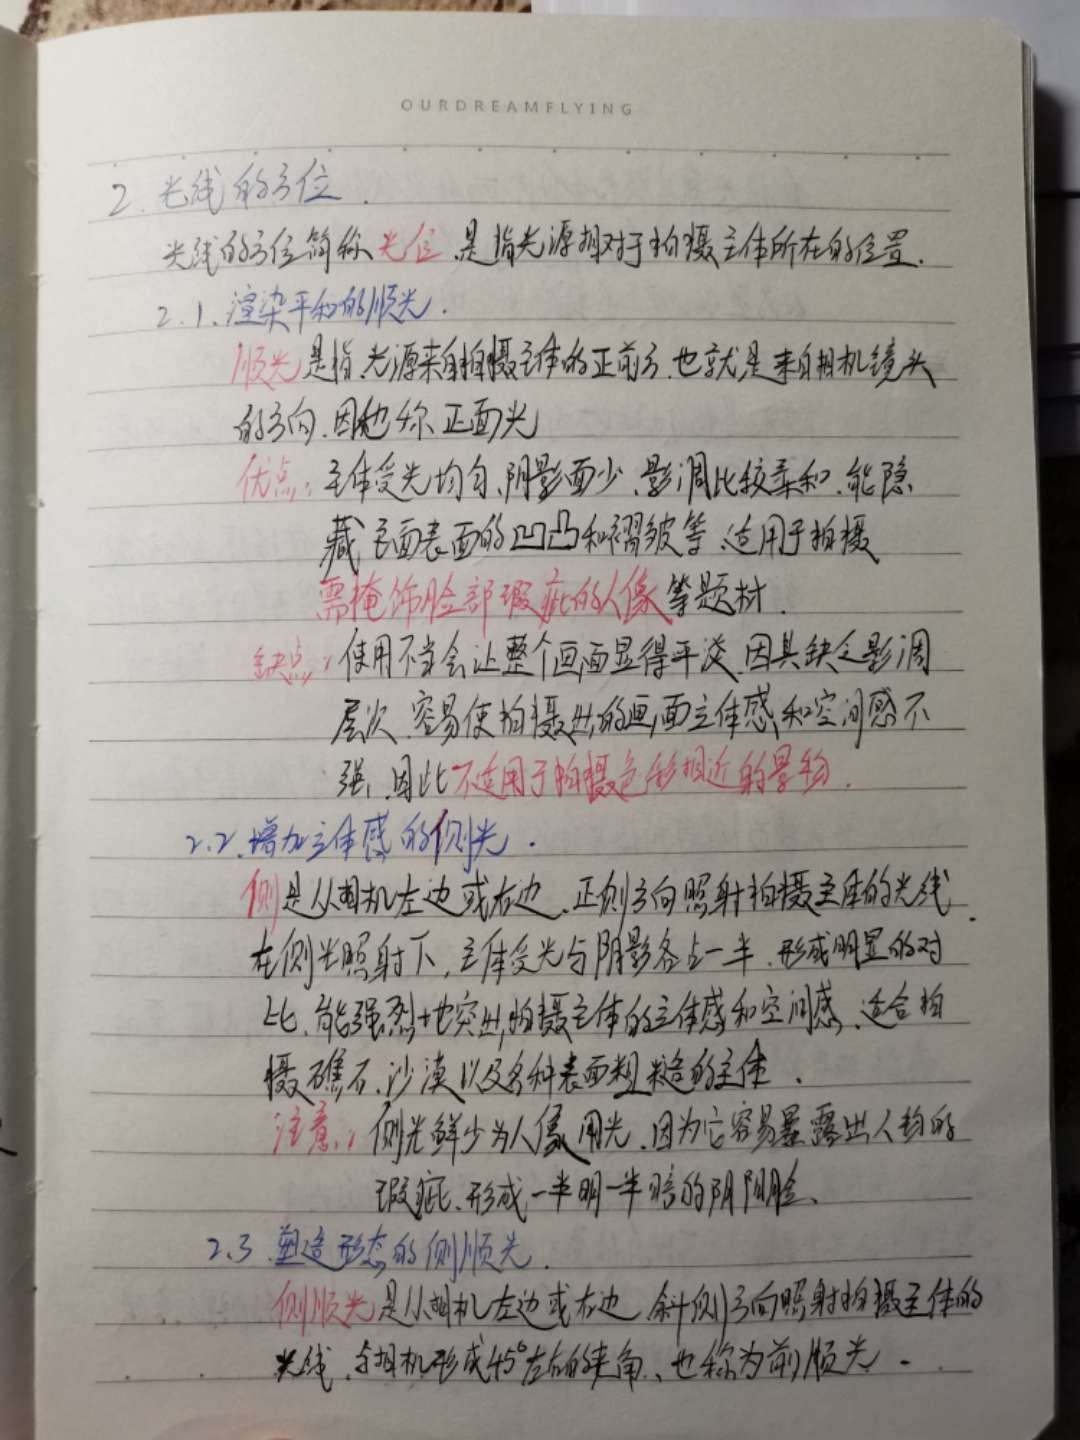 OURDREAMFLYING
2.光线的方位.
光线的方位简称光位,是指光源相对于拍摄主体所在的位置.
2.1.渲染平和的顺光.
顺光是指,光源来自拍摄主体的正前方,也就是来自相机镜头
的方向,因也称,正面光
优点:主体受光均匀,阴影面少,影调比较柔和,能隐
藏表面的凹凸和褶皱等,适用于拍摄
需掩饰脸部瑕疵的人像等题材.
缺点:使用不当会让整个画面显得平淡,因其缺乏影调
层次,容易使拍摄出的画面立体感和空间感不
强,因此不适用于拍摄色彩相近的景物.
2.2.增加立体感的侧光.
侧是从相机左边或右边,正侧方向照射拍摄主体的光线.
在侧光照射下,主体受光与阴影各占一半,形成明显的对
比,能强烈地突出拍摄主体的立体感和空间感,适合拍
摄礁石,沙漠以及各种表面粗糙的主体.
注意:侧光鲜少为人像用光,因为它容易暴露出人物的
瑕疵,形成一半明一半暗的阴阳脸、
2.3.塑造形态的侧顺光.
侧顺光是从相机左边或右边,斜侧方向照射拍摄主体的
光线,与相机形成45°左右的夹角,也称为前顺光.